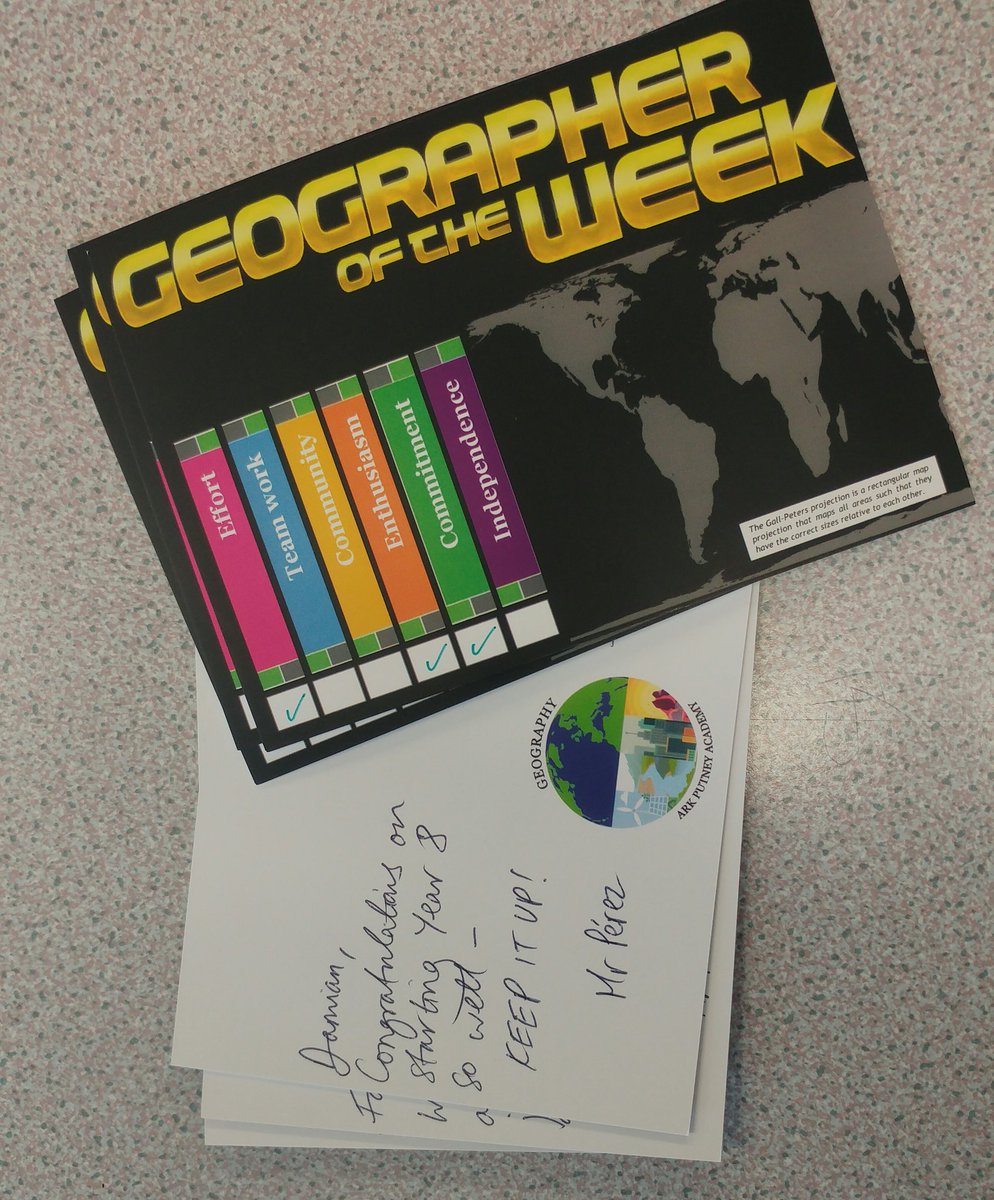 GEOGRAPHER
OF THE WEEK
Effort
Team work
Community
Enthusiasm
Commitment
Independence
The Gall-Peters projection is a rectangular map
projection that maps all areas such that they
have the correct sizes relative to each other.
GEOGRAPHY
ARK PUTNEY ACADEMY
Damian,
Congratulations on
starting Year 8
so well –
KEEP IT UP!
Mr Pérez